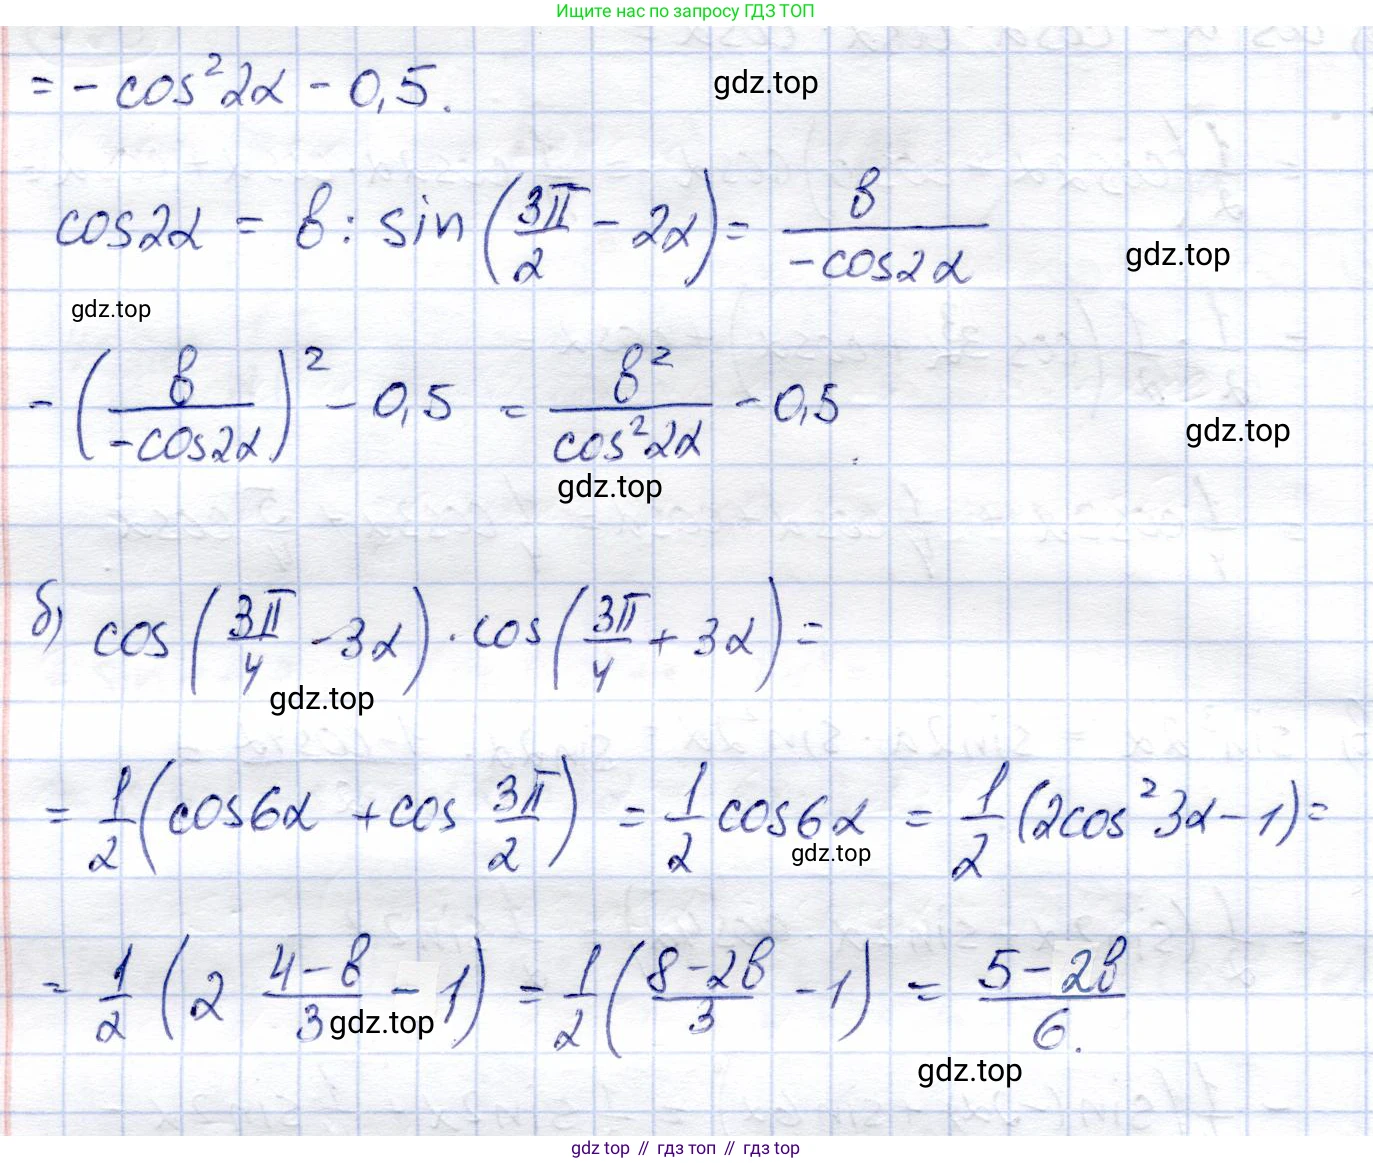 Ищите нас по запросу ГДЗ ТОП
= - cos²2α - 0,5.
gdz.top
cos2α = в : sin(3π/2 - 2α) = в/(-cos2α)
gdz.top
gdz.top
- (в/(-cos2α))² - 0,5 = в²/(cos²2α) - 0,5
gdz.top
gdz.top
б) cos(3π/4 - 3α) · cos(3π/4 + 3α) =
gdz.top
= 1/2(cos6α + cos 3π/2) = 1/2 cos6α = 1/2 (2cos²3α - 1) =
gdz.top
= 1/2 (2 (4-в)/3 - 1) = 1/2 ((8-2в)/3 - 1) = (5-2в)/6.
gdz.top
gdz.top
gdz top // гдз топ // gdz top